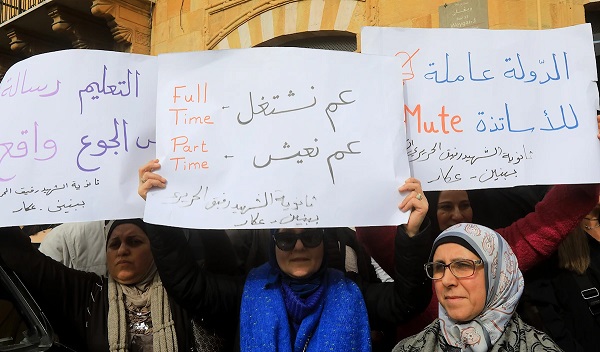 التعليم رسالة
الجوع واقع
ثانوية الشهيد رفيق الحريري
ببنين - عكار
Full Time - عم نشتغل
Part Time - عم نعيش
ثانوية الشهيد رفيق الحريري
ببنين - عكار
الدّولة عاملة
Mute للأساتذة
ثانوية الشهيد رفيق الحريري
ببنين - عكار